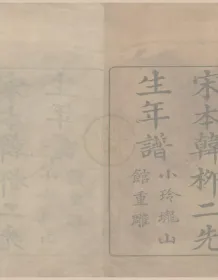 宋本韓柳二先
生年譜
小玲瓏山
館重雕